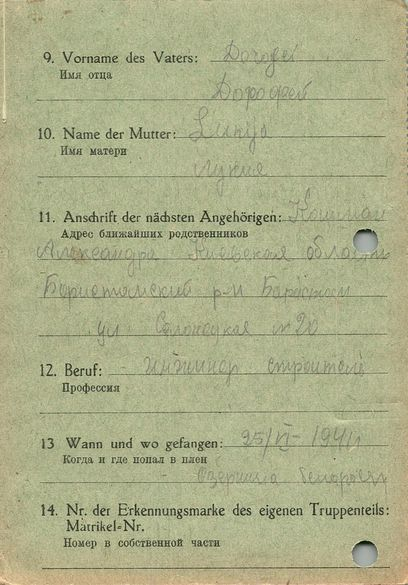 9. Vorname des Vaters: Дорофей
Имя отца
Дорофей
10. Name der Mutter:
Имя матери
Лукия
11. Anschrift der nächsten Angehörigen:
Адрес ближайших родственников
Александра Киевская область
р-н
ул № 20
12. Beruf: - инжинер строитель
Профессия
13 Wann und wo gefangen: 25/VI - 1941
Когда и где попал в плен
14. Nr. der Erkennungsmarke des eigenen Truppenteils:
Matrikel-Nr.
Номер в собственной части